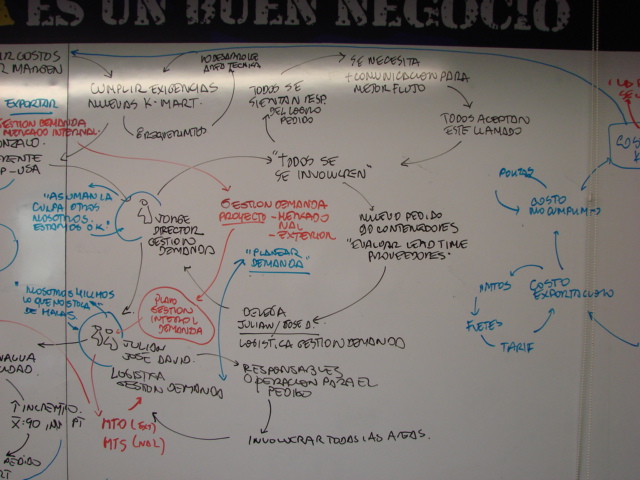 ES UN BUEN NEGOCIO
COSTOS
MARGEN
AREA TECNICA
CUMPLIR EXIGENCIAS
NUEVAS K. MART.
TODOS SE
SIENTAN RESP.
DEL LOGRO
PEDIDO
SE NECESITA
+ COMUNICACION PARA
MEJOR FLUJO
TODOS ACEPTAN
ESTE LLAMADO
EXPORTAR
GESTION DEMANDA
MERCADO INTERNAL.
GONZALO.
P-USA
"TODOS SE
SE INVOLUCREN"
"ASUMAN LA
CULPA OTROS
NOSOTROS
ESTAMOS O.K."
JORGE
DIRECTOR
GESTION
DEMANDA
GESTION DEMANDA
PROYECTO - MERCADO
NAL
- EXTERIOR
"PLANEAR
DEMANDA"
NUEVO PEDIDO
90 CONTENEDORES
"EVALUAR LEAD TIME
PROVEEDORES"
COSTO
NO CUMPLIMTO
COSTO
EXPORTACION
FLETES
TARIF
PLAN
GESTION
INTEGRAL
DEMANDA
DE MALAS"
JULIAN
JOSE DAVID.
LOGISTICA
GESTION DEMANDA
DELEGA
JULIAN/JOSE D.
LOGISTICA GESTION DEMANDA
RESPONSABLES
OPERACION PARA EL
PEDIDO
INVOLUCRAR TODAS LAS AREAS.
MTO (EXT)
MTS (NAL)
PEDIDO